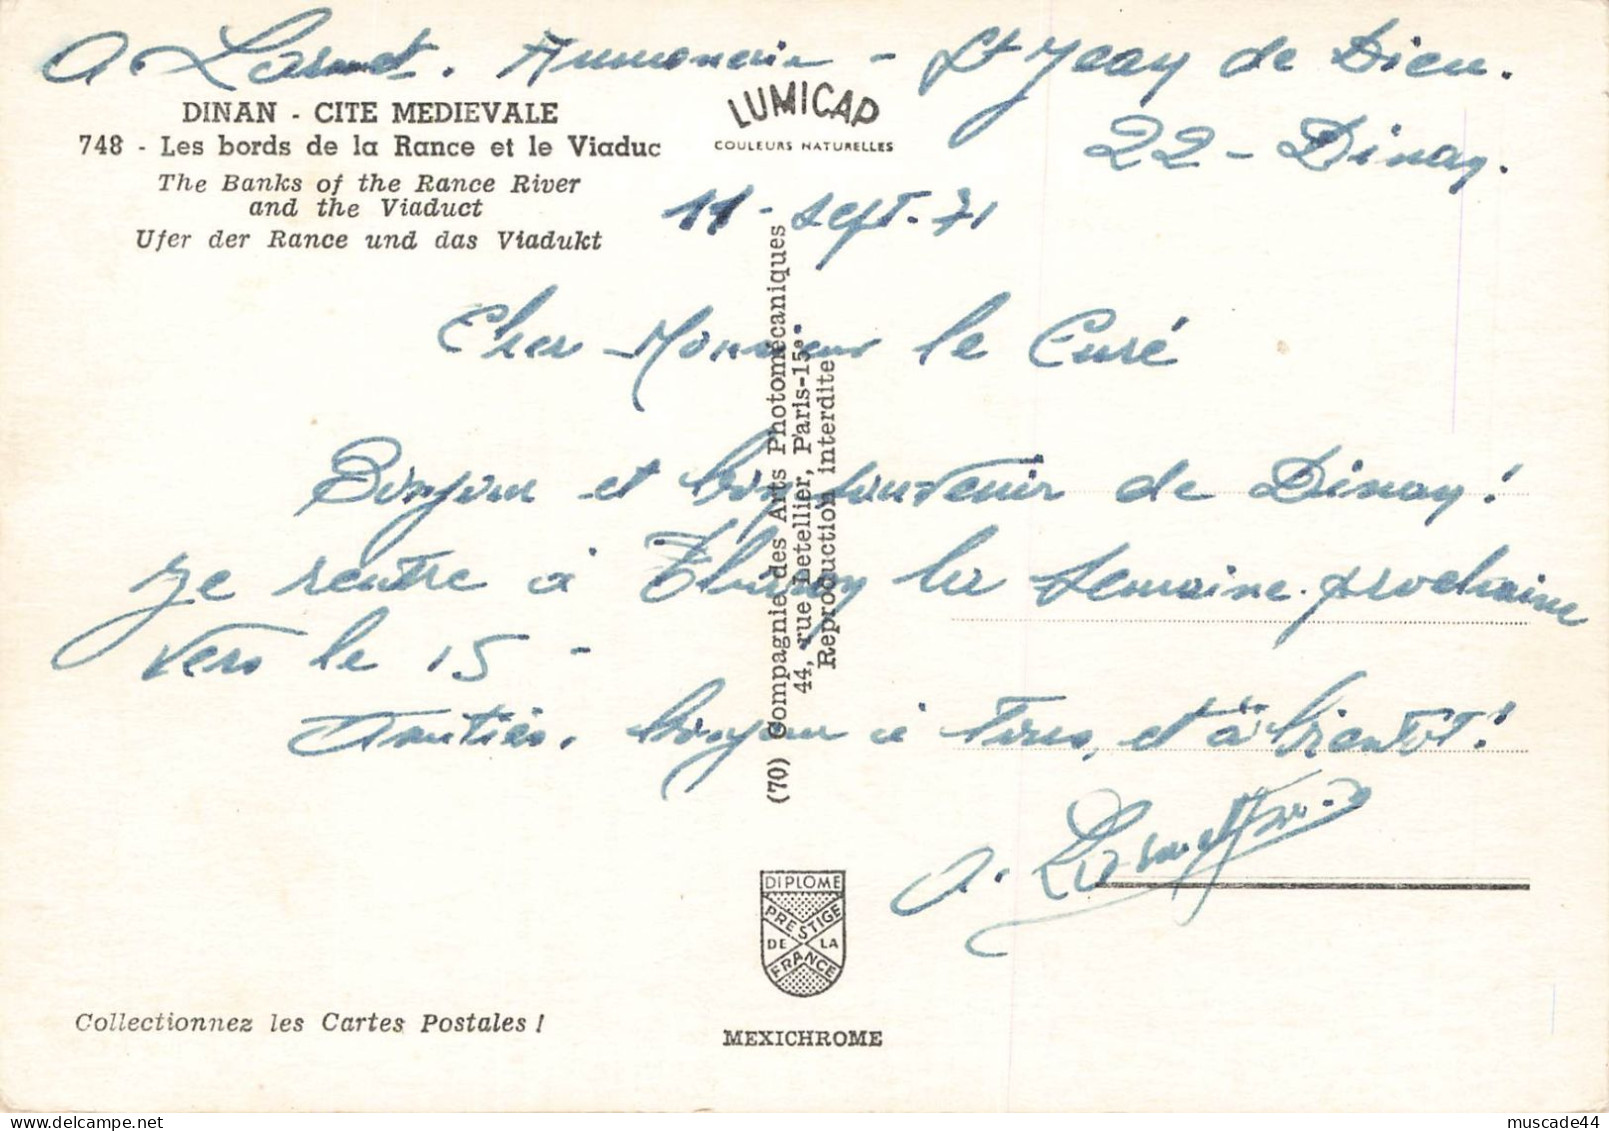 A. Larnet. Aumonerie - St Jean de Dieu.
DINAN - CITE MEDIEVALE
LUMICAP
COULEURS NATURELLES
22 - Dinan.
748 - Les bords de la Rance et le Viaduc
The Banks of the Rance River
and the Viaduct
Ufer der Rance und das Viadukt
11 - Sept. 71
Cher Monsieur le Curé
Bonjour et bon souvenir de Dinan!
Je rentre à la semaine prochaine
vers le 15 -
Amitiés, bonjour à Tous, et à bientôt!
A.
(70) Compagnie des Arts Photomécaniques
44, rue Letellier, Paris-15e.
Reproduction interdite
DIPLOME
PRESTIGE
DE LA
FRANCE
Collectionnez les Cartes Postales !
MEXICHROME
muscade44